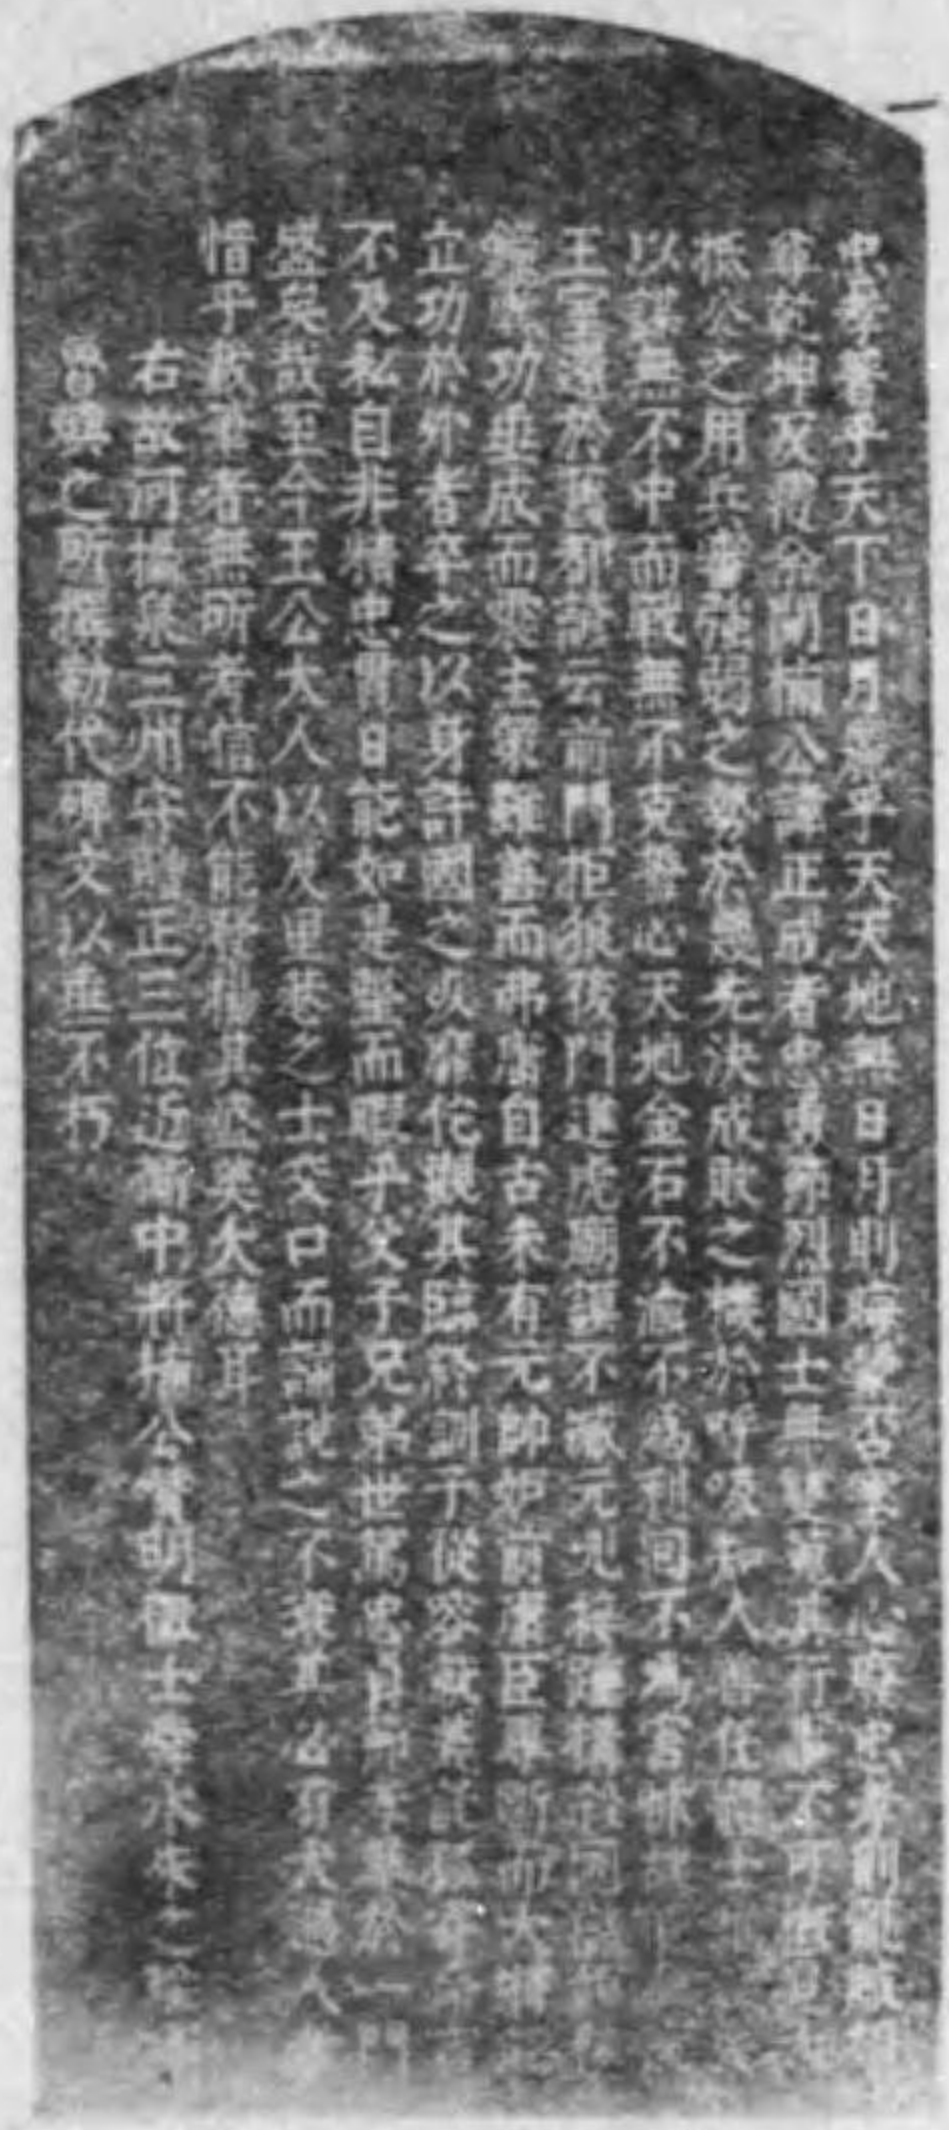 忠孝著乎天下日月麗乎天天地無日月則晦蒙否塞人心廢忠孝則亂賊相
尋乾坤反覆余聞楠公諱正成者忠勇節烈國士無雙蒐其行事不可概見大
抵公之用兵審强弱之勢於幾先決成敗之機於呼吸知人善任體士
以謀無不中而戰無不克誓心天地金石不渝不爲利回不爲害怵
王室還於舊都諺云前門拒狼後門進虎廟謨不臧元兇接踵構
功垂成而震主策雖善而弗庸自古未有元帥妒前庸臣專斷而大將
立功於外者卒之以身許國之死靡佗觀其臨終訓子從容就義託孤
不及私自非精忠貫日能如是整而暇乎父子兄弟世篤忠貞節孝萃於一門
盛矣哉至今王公大人以及里巷之士交口而誦說之不衰其必有大過人
惜乎載筆者無所考信不能發揚其盛美大德耳
右故河攝泉三州守贈正三位近衛中將楠公贊明徵士舜水朱之瑜
魯璵之所撰勒代碑文以垂不朽